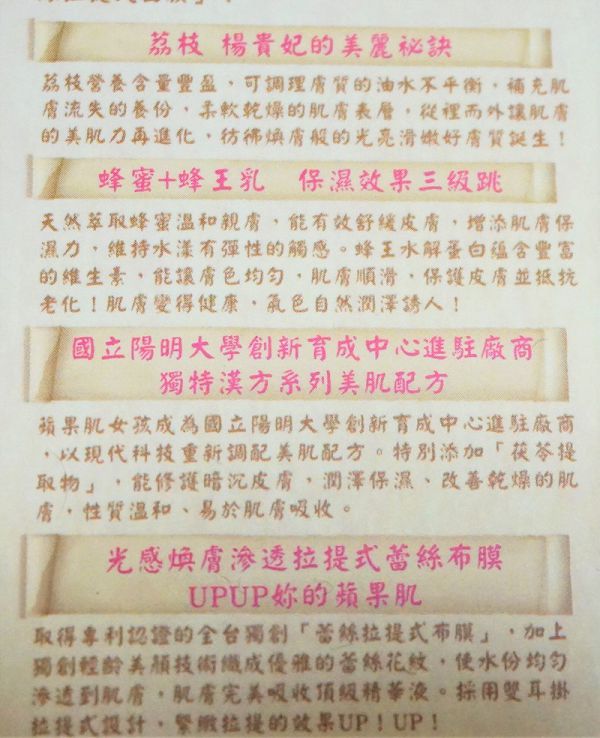 荔枝 楊貴妃的美麗祕訣
荔枝營養含量豐盈，可調理膚質的油水不平衡，補充肌
膚流失的養份，柔軟乾燥的肌膚表層，從裡而外讓肌膚
的美肌力再進化，彷彿煥膚般的光亮滑嫩好膚質誕生！
蜂蜜+蜂王乳 保濕效果三級跳
天然萃取蜂蜜溫和親膚，能有效舒緩皮膚，增添肌膚保
濕力，維持水漾有彈性的觸感。蜂王水解蛋白蘊含豐富
的維生素，能讓膚色均勻，肌膚順滑，保護皮膚並抵抗
老化！肌膚變得健康，氣色自然潤澤誘人！
國立陽明大學創新育成中心進駐廠商
獨特漢方系列美肌配方
蘋果肌女孩成為國立陽明大學創新育成中心進駐廠商
，以現代科技重新調配美肌配方。特別添加「茯苓提
取物」，能修護暗沉皮膚，潤澤保濕、改善乾燥的肌
膚，性質溫和、易於肌膚吸收。
光感煥膚滲透拉提式蕾絲布膜
UPUP妳的蘋果肌
取得專利認證的全台獨創「蕾絲拉提式布膜」，加上
獨創輕齡美顏技術織成優雅的蕾絲花紋，使水份均勻
滲透到肌膚，肌膚完美吸收頂級精華液。採用雙耳掛
拉提式設計，緊緻拉提的效果UP！UP！